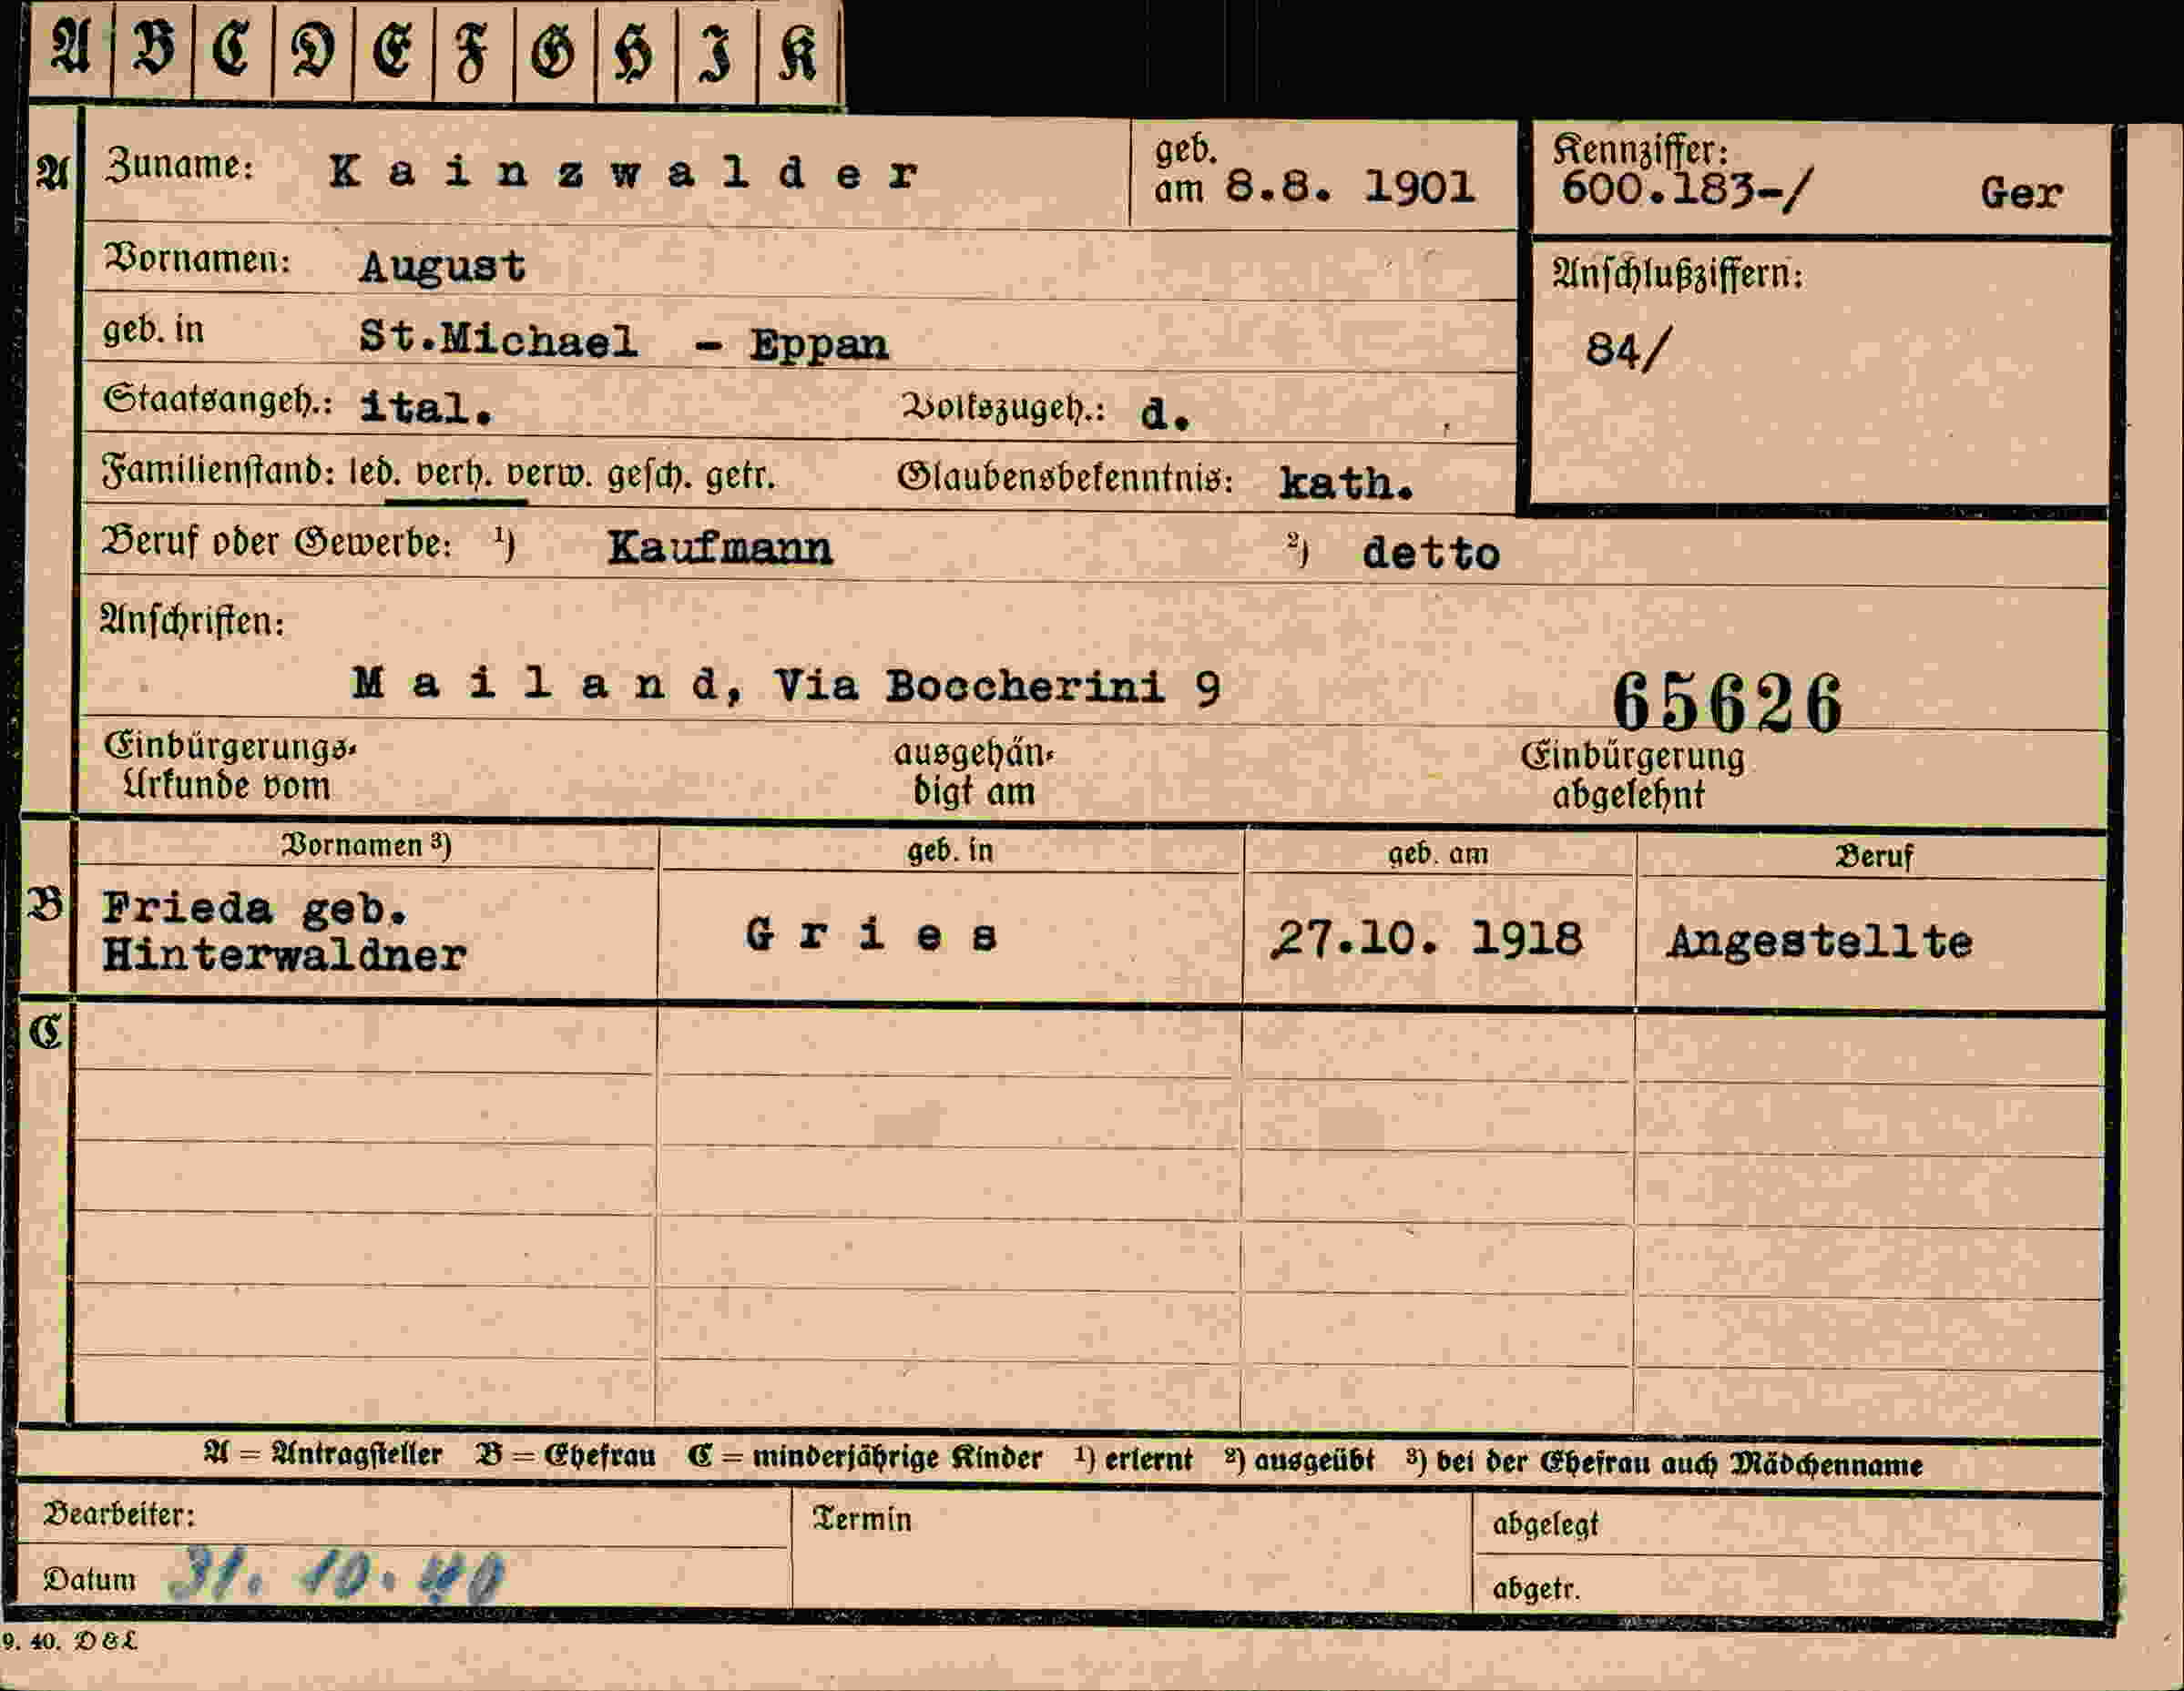 A B C D E F G H I K
A Zuname: Kainzwalder geb. am 8.8. 1901 Kennziffer: 600.183-/ Ger
Vornamen: August Anschlußziffern:
geb. in St.Michael - Eppan 84/
Staatsangeh.: ital. Volkszugeh.: d.
Familienstand: led. verh. verw. gesch. getr. Glaubensbekenntnis: kath.
Beruf oder Gewerbe: ¹) Kaufmann ²) detto
Anschriften:
Mailand, Via Boccherini 9 65626
Einbürgerungs- ausgehän- Einbürgerung
Urkunde vom digt am abgelehnt
Vornamen ³) geb. in geb. am Beruf
B Frieda geb.
Hinterwaldner Gries 27.10. 1918 Angestellte
C
A = Antragsteller B = Ehefrau C = minderjährige Kinder ¹) erlernt ²) ausgeübt ³) bei der Ehefrau auch Mädchenname
Bearbeiter: Termin abgelegt
Datum 31. 10. 40 abgetr.
9. 40. D & L